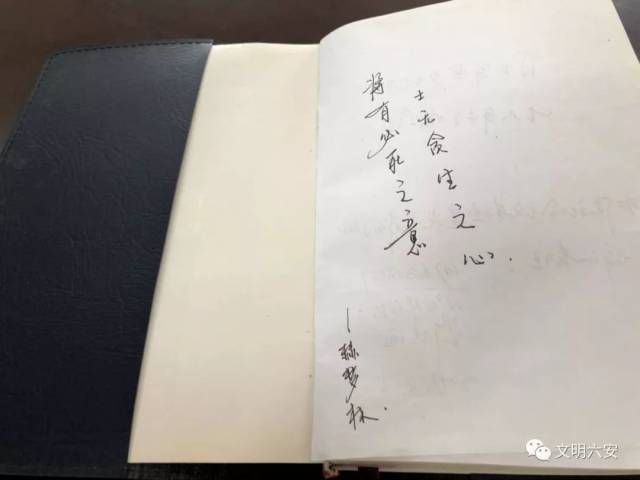 将有必死之意
士无贪生之心.
—赫梦林.
文明六安